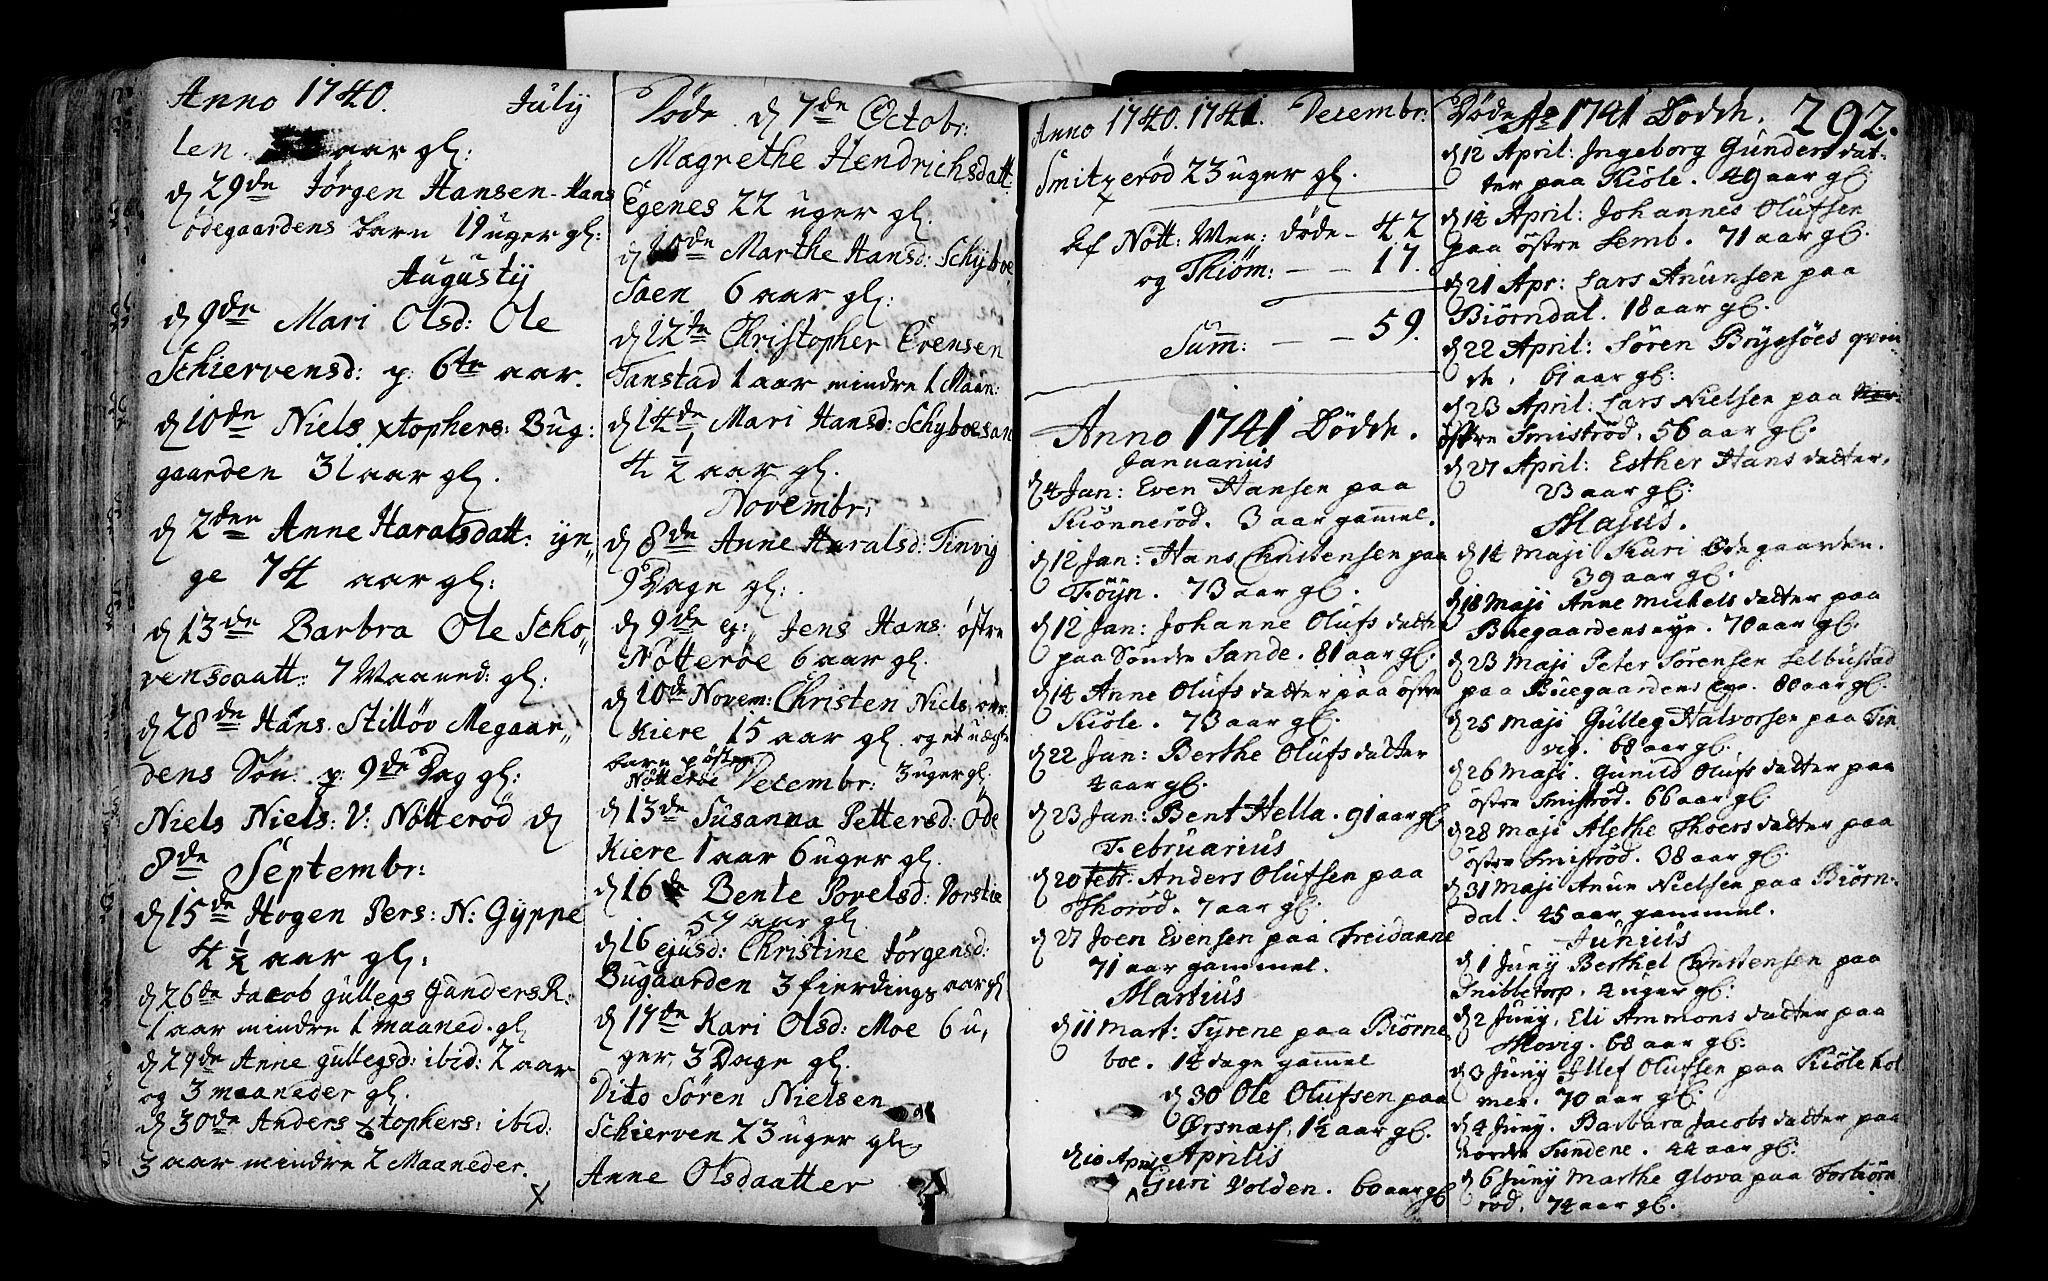 Anno 1740. July
len. aar gl:
d 29de Jørgen Hansen Hans
ødegaardens barn 19 uger gl:
Augustij
d 9de Mari Olsd: Ole
Schiervensd: p: 6te aar.
d 10de Niels xtophers: Bug:
gaarden 31 aar gl.
d 2den Anne Haralsdatt: yn,,
ge 74 aar gl:
d 13de Barbra Ole Scho,,
vensdaatt: 7 Maaned: gl:
d 28de Hans Stilløv Megaar,,
dens Søn p: 9de Dag gl:
Niels Niels: V: Nøtterød d
8de Septembr:
d 15de Hogen Pers: N: Gyppe
4 1/2 aar gl:
d 26de Jacob gullegs Gunders R:
1 aar mindre 1 maaned. gl
d 29de Anne gullegsd: ibid: 2 aar
og 3 maaneder gl.
d 30de Anders xtophers: ibid:
3 aar mindre 2 Maaneder.
x
Døde d 7de Octobr:
Magrethe Hendrichsdatt:
Egenes 22 uger gl.
d 10de Marthe Hansd: Schyboe
Saen 6 aar gl:
d 12te Christopher Evensen
Tanstad 1 aar mindre 1 Maan:
d 14de Mari Hansd: Schyboesan
4 1/2 aar gl.
Novembr:
d 8de Anne Haralsd: Tinvig
9 Dage gl:
d 9de ej: Jens Hans: østre
Nøtterøe 6 aar gl.
d 10de Novem: Christen Niels:
Kiere 15 aar gl. og et uægte
barn p østre
Nøtterøe Decembr: 3 uger gl.
d 13de Susanna Pettersd: Øde
Kiere 1 aar 6 uger gl.
d 16de Bente Povelsd: Vorstie
57 aar gl.
d 16 ejusd: Christine Jørgensd:
Bugaarden 3 fierdings aar gl
d 17de Kari Olsd: Moe 6 u,
ger, 3 Dage gl.
Dito Søren Nielsen
Schierven 23 uger gl
Anne Olsdaatter
Anno 1740. 1741. Decembr:
Smitzerød 23 uger gl.
Af Nött: Men: døde - 42
og Thiøm: - - 17.
Sum: - - 59.
Anno 1741 Dødde.
Januarius
d 4 Jan: Even Hansen paa
Kiønnerød. 3 aar gammel.
d 12 Jan: Hans Christensen paa
Føyn. 73 aar gl.
d 12 Jan: Johanne Olufs datter
paa Søndre Sande. 81 aar gl.
d 14 Anne Olufs datter paa østre
Kiøle. 73 aar gl.
d 22 Jan: Berthe Olufs datter
4 aar gl.
d 23 Jan: Bent Hella. 91 aar gl
Februarius
d 20 Febr: Anders Olufsen paa
Thorød. 7 aar gl.
d 27 Joen Evensen paa Freidanne
71 aar gammel.
Martius
d 11 Mart: Syrene paa Biørne
boe. 14 dage gammel
d 30 Ole Olufsen paa
Ørsnæs, 1 1/2 aar gl.
d 10 April Aprilis
Guri Volden. 60 aar gl
Døde Ao 1741 Dødde. 292.
d 12 April: Ingeborg Gunders dat-
ter paa Kiøle. 49 aar gl.
d 14 April: Johannes Olufsen
paa østre Semb. 71 aar gl.
d 21 Apr: Lars Anunsen paa
Biørndal. 18 aar gl.
d 22 April: Søren Bryesøes qvin-
de, 61 aar gl:
d 23 April: Lars Nielsen paa
østre Smistrød. 56 aar gl.
d 27 April: Esther Hans datter.
23 aar gl:
Majus.
d 14 Maji Kari Ødegaarden.
39 aar gl.
d 18 Maji Anne Michels datter paa
Buegaardens eye. 70 aar gl.
d 23 Maji Peter Sørensen Selbustad
paa Buegaardens Eye. 80 aar gl.
d 25 Maji Gulleg Halvorsen paa Tin
vig. 68 aar gl.
d 26 Maji. Gunild Olufs datter paa
østre Smistrød. 66 aar gl.
d 28 Maji Alethe Thoers datter paa
østre Smistrød. 38 aar gl.
d 31 Maji Anun Nielsen paa Biørn-
dal. 45 aar gammel.
Junius
d 1 Junij Berthel Christensen paa
Snibletorp. 4 uger gl:
d 2 Junij, Eli Ammons datter paa
Hovig. 68 aar gl:
d 3 Junij Ellef Olufsen paa Kiøle hol
men. 70 aar gl.
d 4 Junij. Barbara Jacobs datter paa
nordre Sundene. 44 aar gl:
d 6 Junij Marthe Glova paa Torbiørn
rød. 74 aar gl.